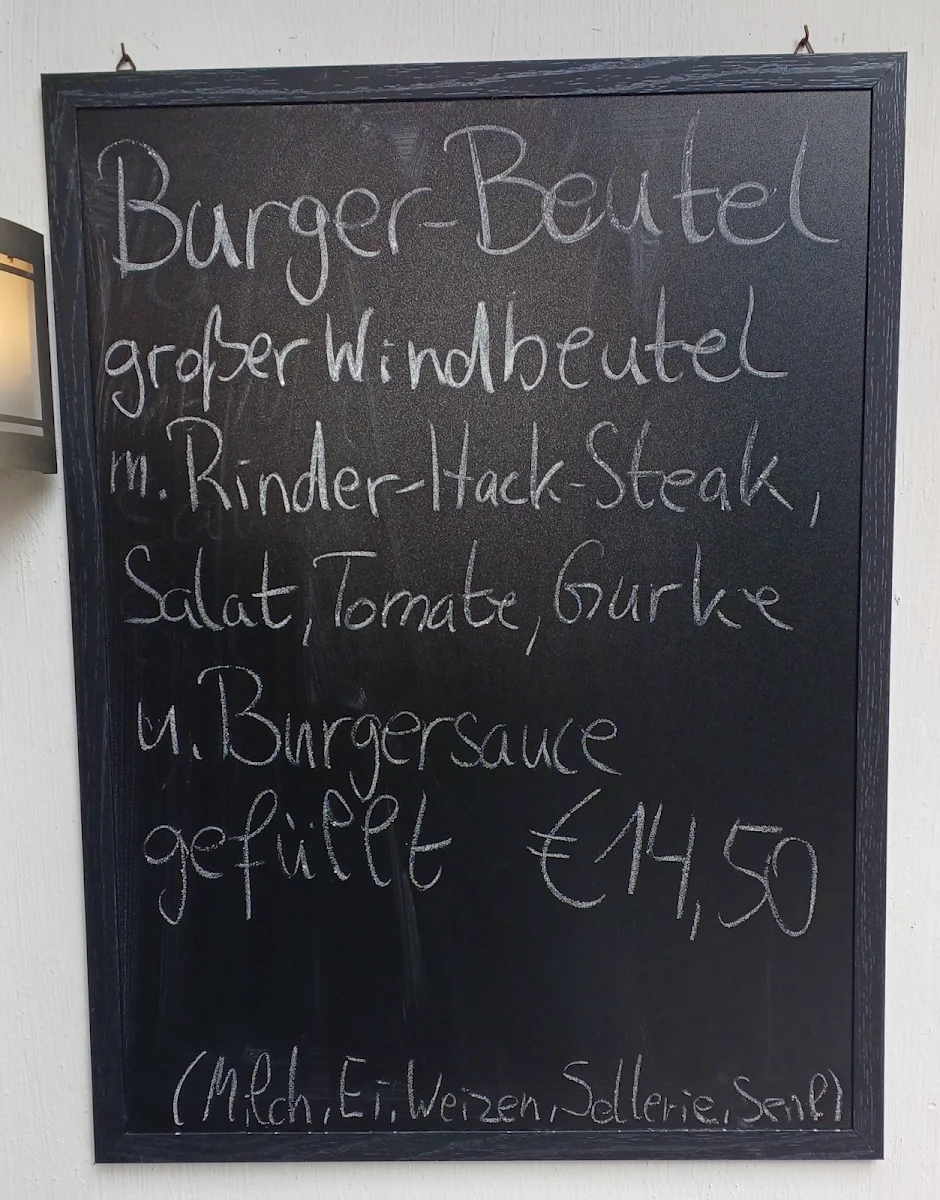 Burger-Beutel
großer Windbeutel
m. Rinder-Hack-Steak,
Salat, Tomate, Gurke
u. Burgersauce
gefüllt €14,50
(Milch, Ei, Weizen, Sellerie, Senf)